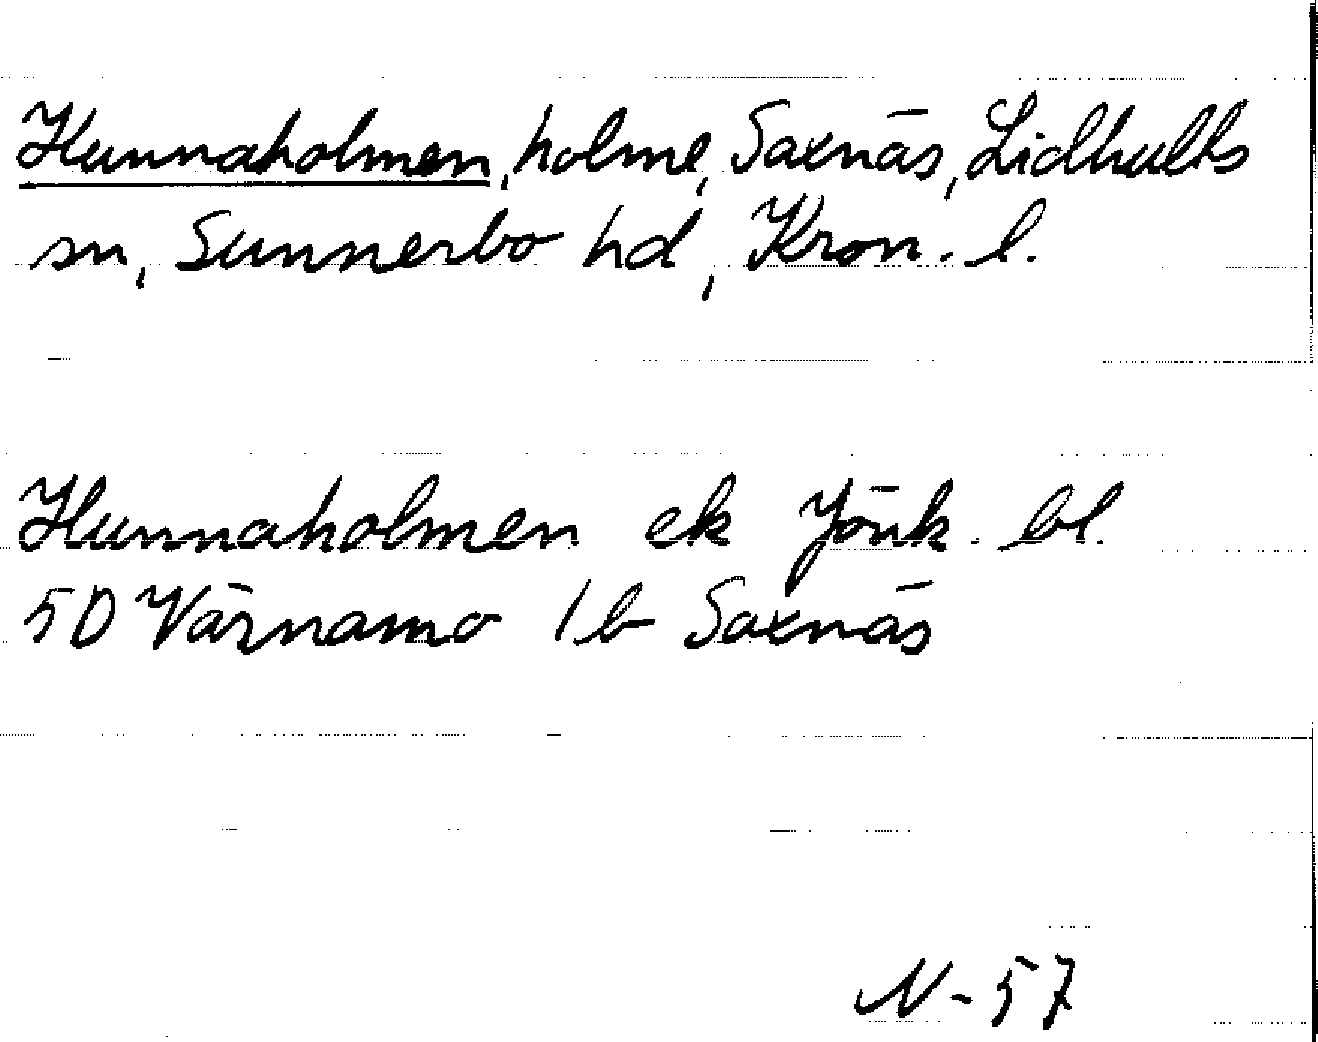 Hunnaholmen, holme, Saxnäs, Lidhults
sn, Sunnerbo hd, Kron. l.
Hunnaholmen ek Jönk. bl.
5D Värnamo 1b Saxnäs
N-57